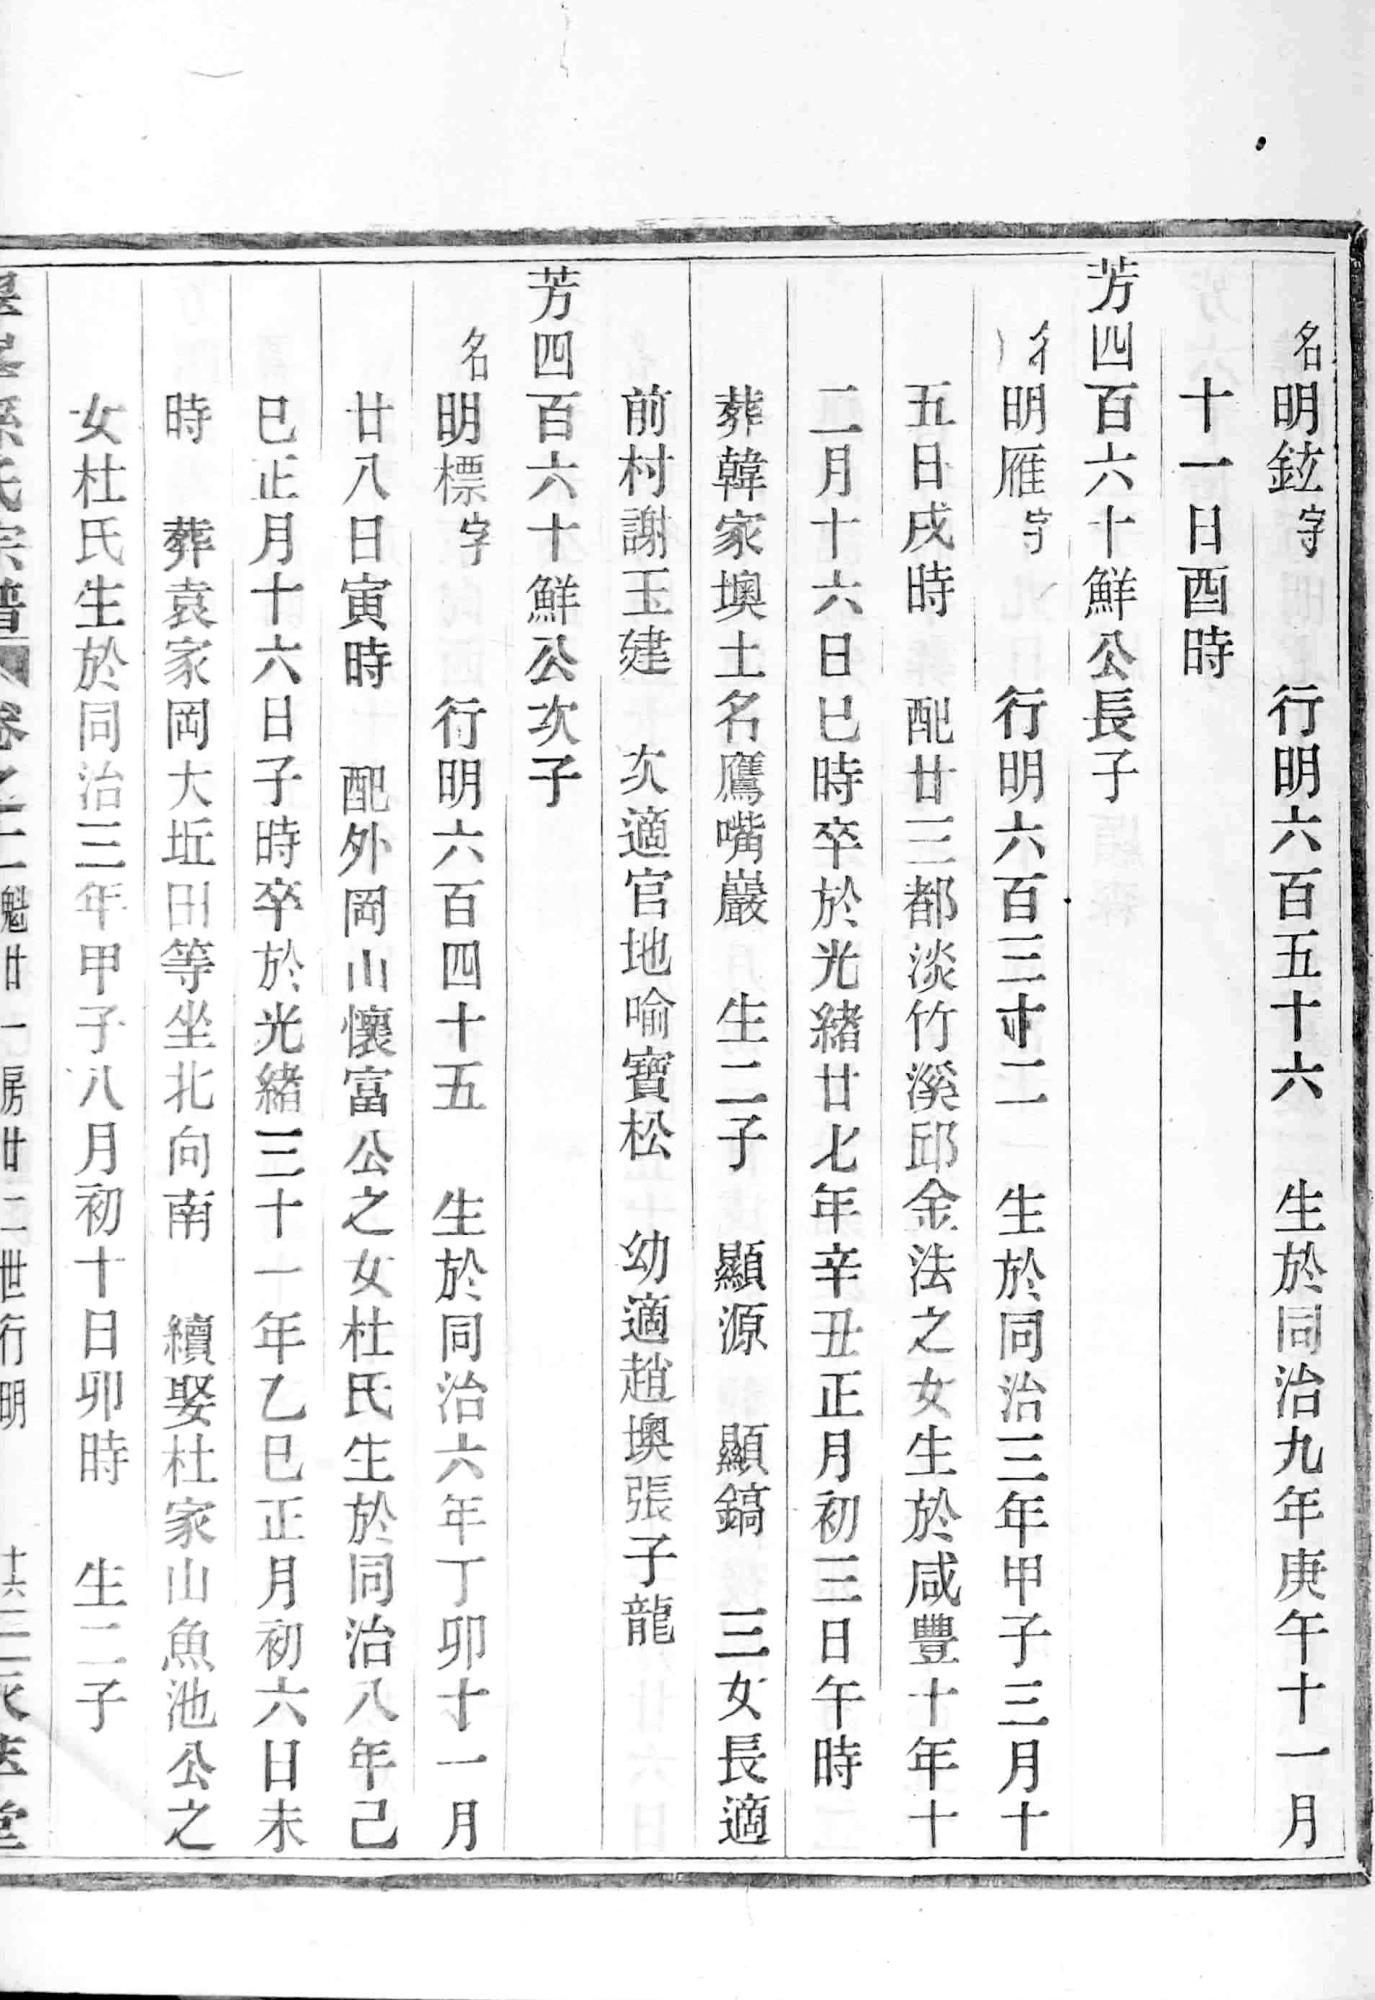 名明鉉字　行明六百五十六　生於同治九年庚午十一月
十一日酉時
芳四百六十鮮公長子
名明雁字　行明六百三十二　生於同治三年甲子三月十
五日戌時　配廿三都淡竹溪邱金法之女生於咸豐十年十
二月十六日巳時卒於光緒廿七年辛丑正月初三日午時
葬韓家墺土名鷹嘴巖　生二子　顯源　顯鎬　三女長適
前村謝玉建　次適官地喻寶松　幼適趙墺張子龍
芳四百六十鮮公次子
名明標字　行明六百四十五　生於同治六年丁卯十一月
廿八日寅時　配外岡山懷富公之女杜氏生於同治八年己
巳正月十六日子時卒於光緒三十一年乙巳正月初六日未
時　葬袁家岡大坵田等坐北向南　續娶杜家山魚池公之
女杜氏生於同治三年甲子八月初十日卯時　生二子
孫氏宗譜　卷之二　魁廿一房廿二世行明　十六　堂